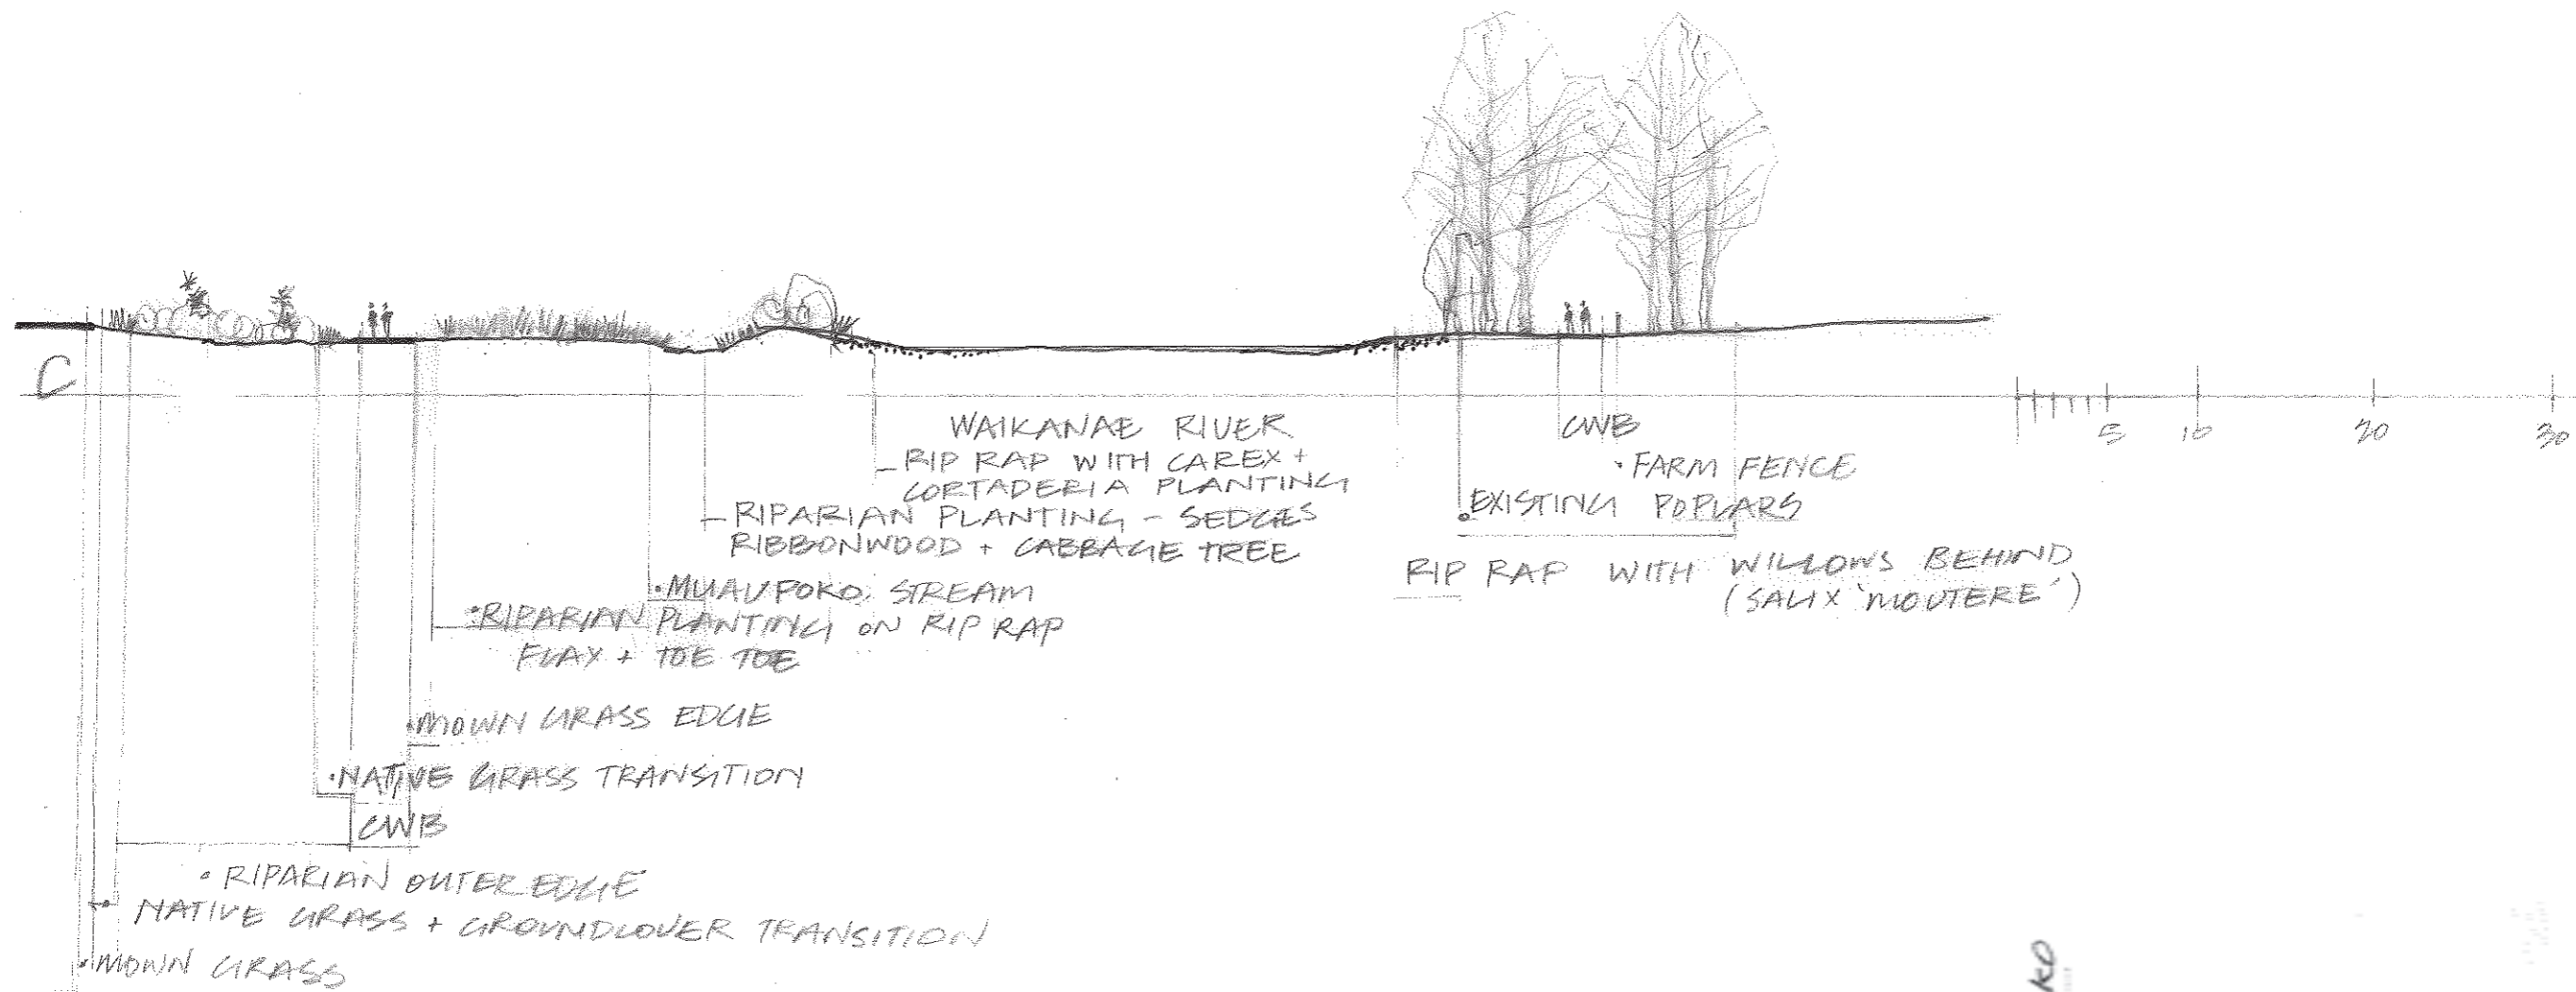 C
WAIKANAE RIVER
RIP RAP WITH CAREX +
CORTADERIA PLANTING
RIPARIAN PLANTING - SEDGES
RIBBONWOOD + CABBAGE TREE
MUAUPOKO STREAM
RIPARIAN PLANTING ON RIP RAP
FLAX + TOE TOE
MOWN GRASS EDGE
NATIVE GRASS TRANSITION
CWB
RIPARIAN OUTER EDGE
NATIVE GRASS + GROUNDCOVER TRANSITION
MOWN GRASS
CWB
FARM FENCE
EXISTING POPLARS
RIP RAP WITH WILLOWS BEHIND
(SALIX 'MOUTERE')
5 10 20 30
KO